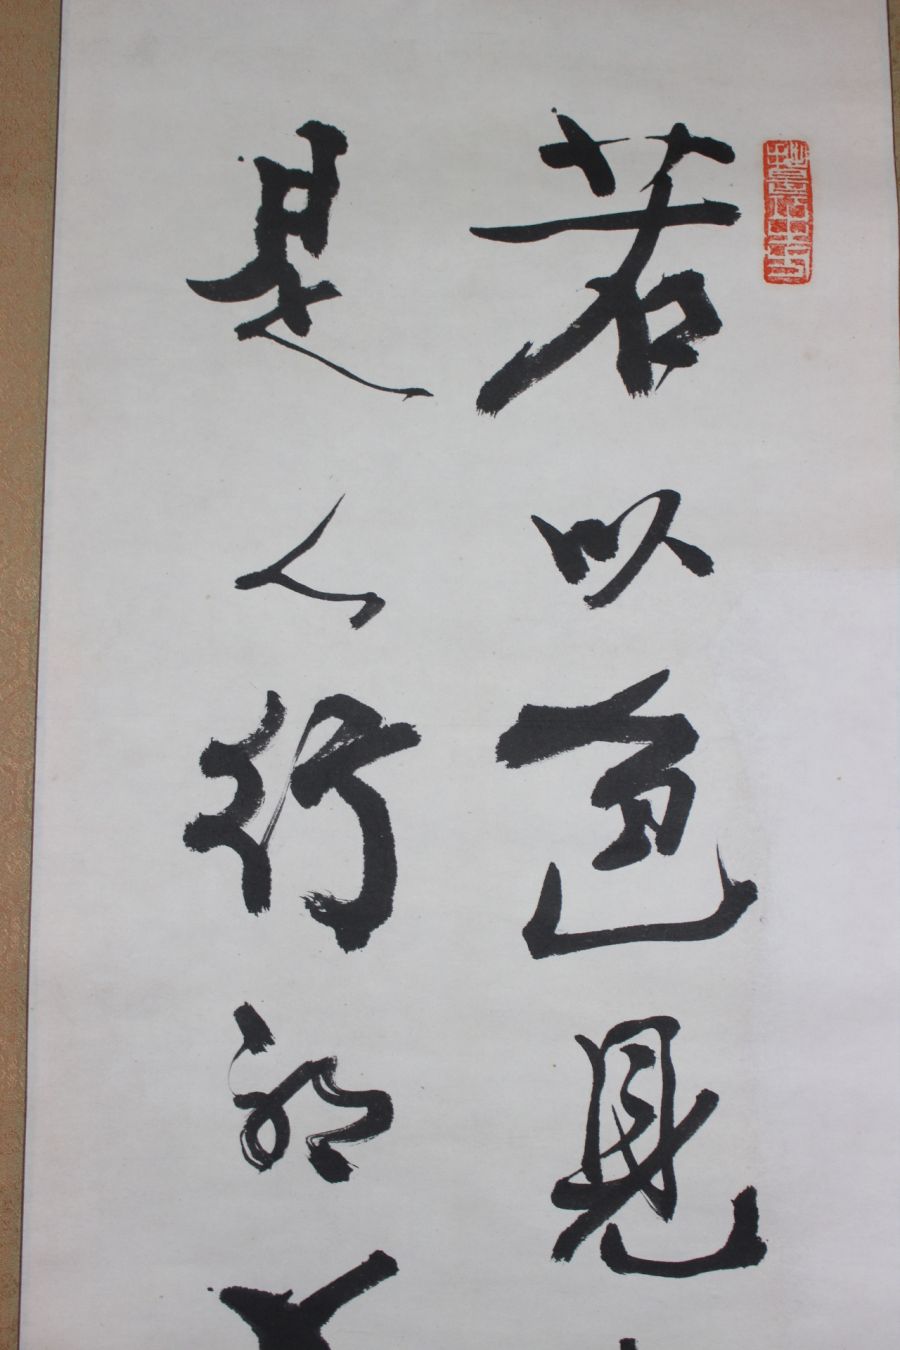 若以色見
是人行邪